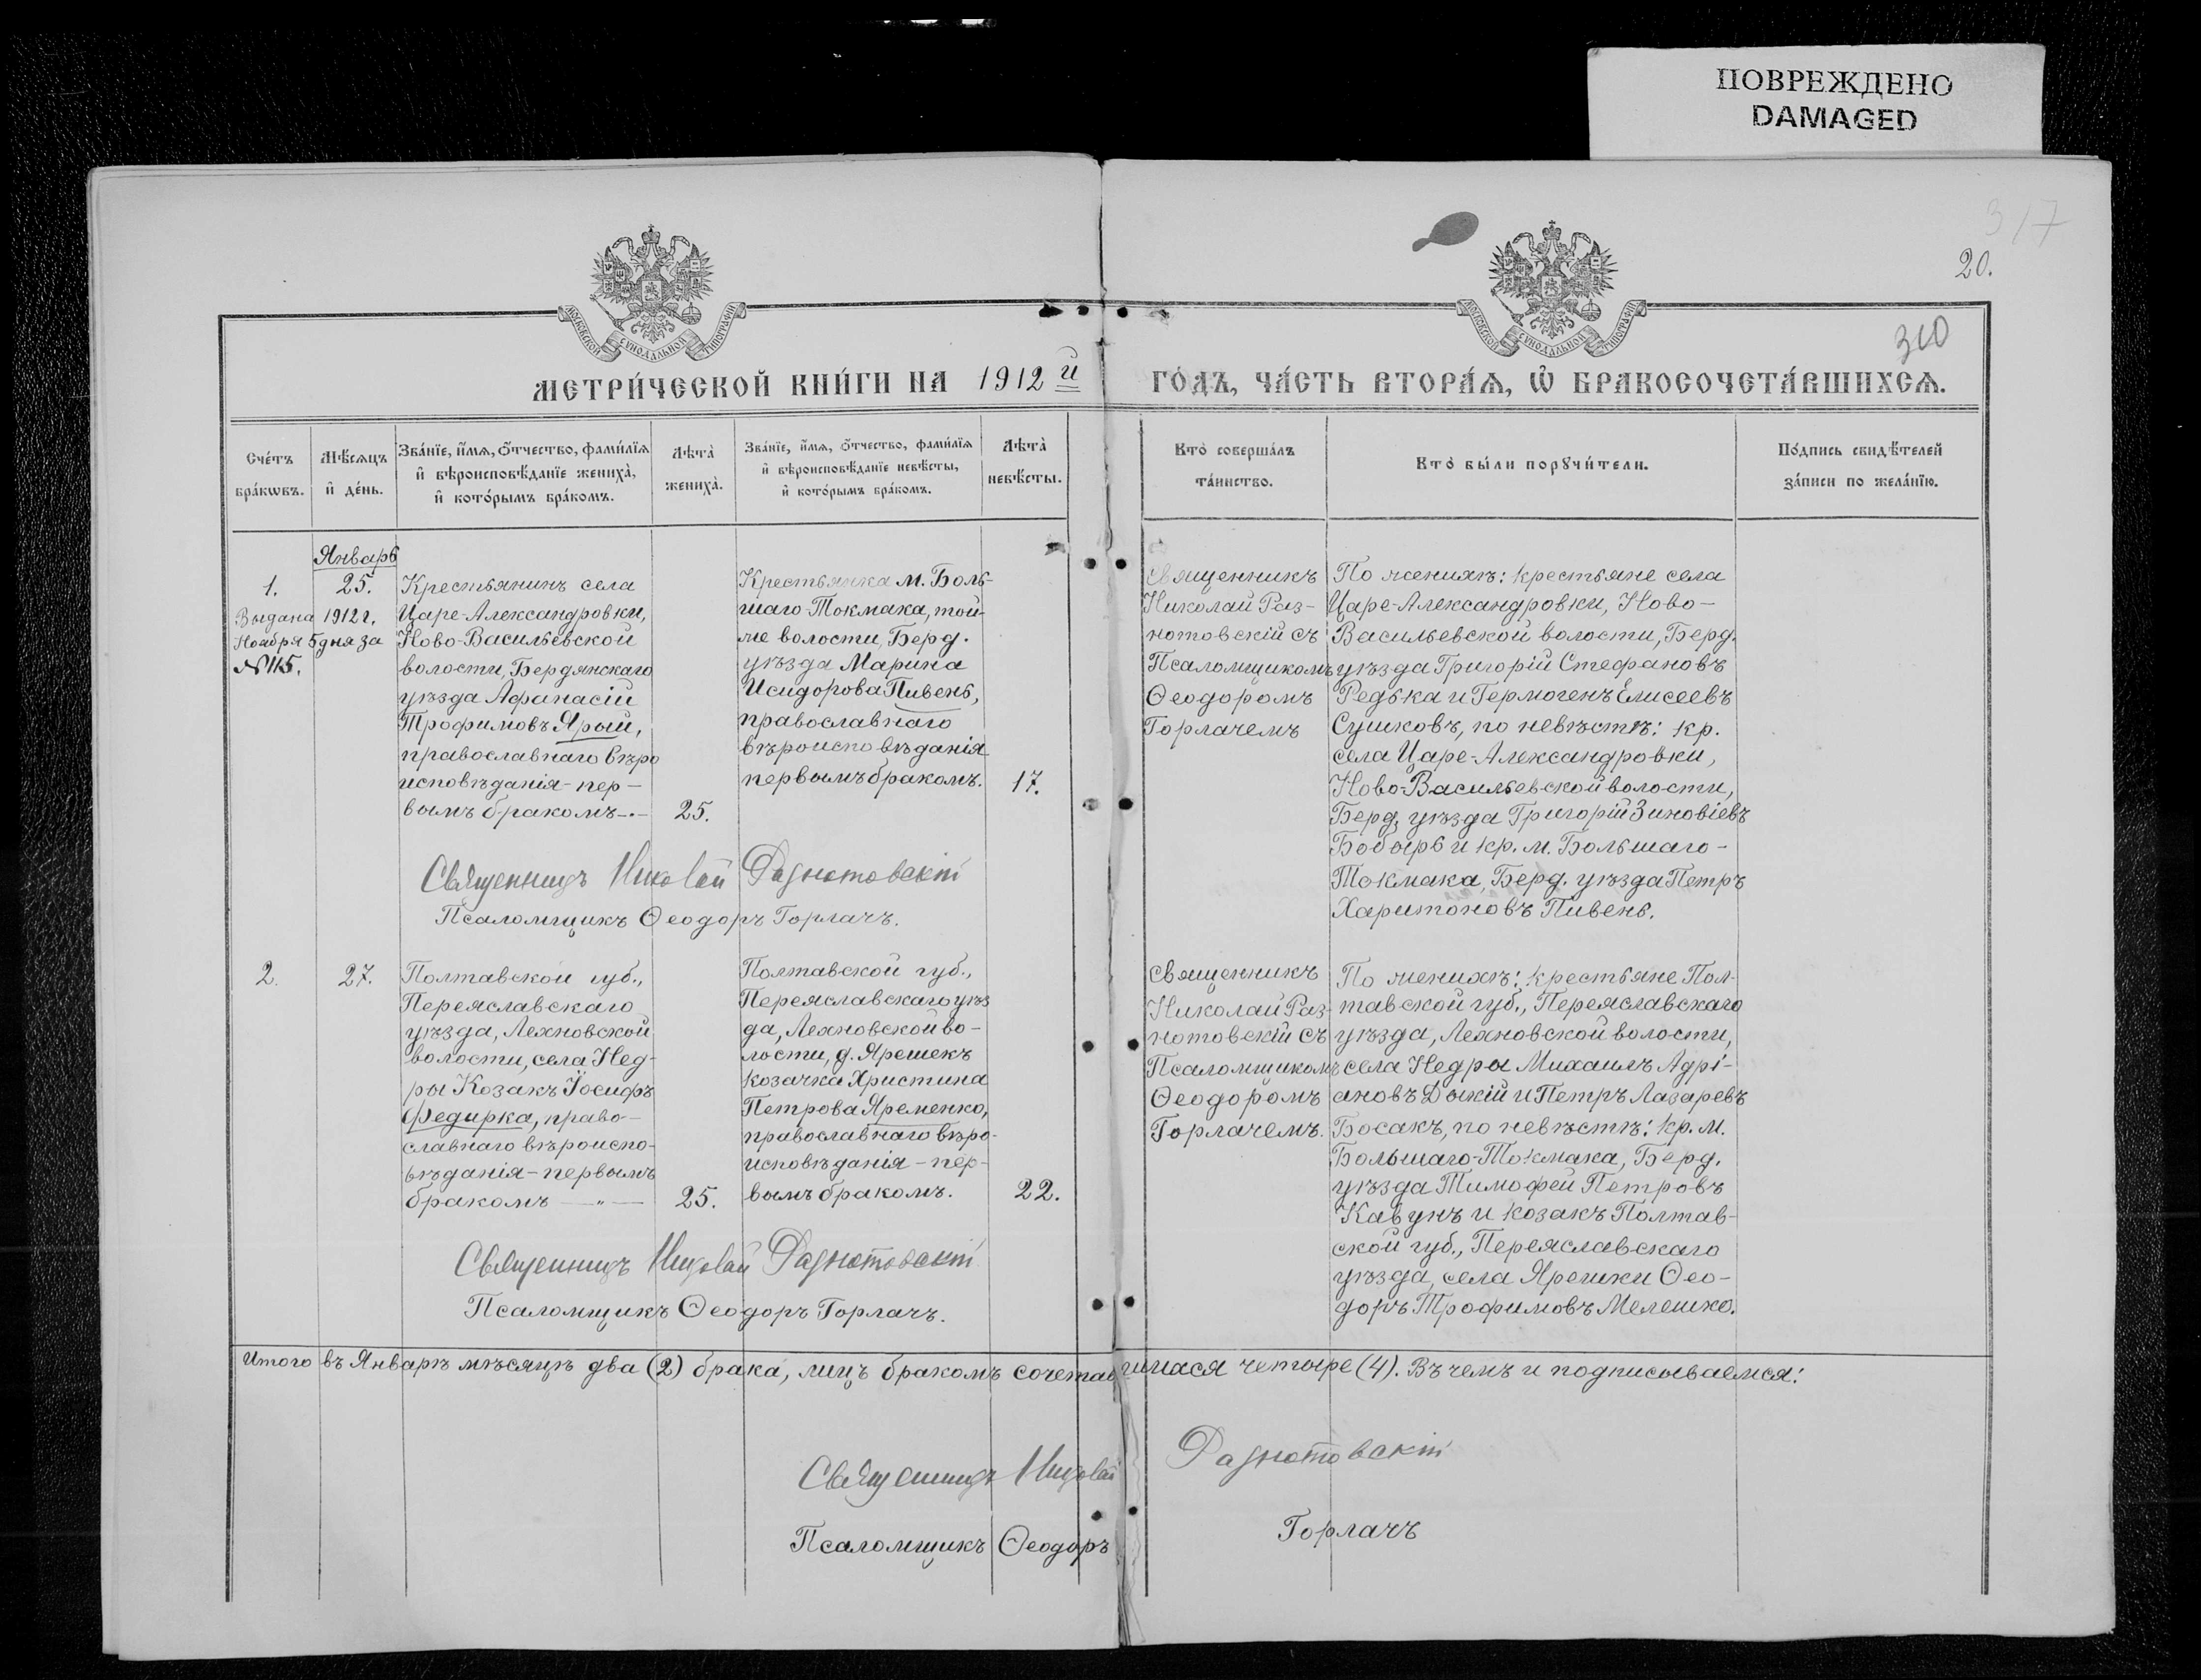 ПОВРЕЖДЕНО
DAMAGED
317
20.
310
МОСКОВСКОЙ СѴНОДАЛЬНОЙ ТИПОГРАФІИ
МОСКОВСКОЙ СѴНОДАЛЬНОЙ ТИПОГРАФІИ
МЕТРИ́ЧЕСКОЙ КНИ́ГИ НА 1912 й
ГО́ДЪ, ЧА́СТЬ ВТОРА́Ѧ, Ѡ҆ БРАКОСОЧЕТА́ВШИХСѦ.
Сче́тъ
бра́кѡвъ.
Мѣ́сяцъ
и҆ де́нь.
Зва́нїе, и҆́мѧ, ѻ҆́тчество, фами́лїѧ
и҆ вѣроисповѣ́данїе жениха̀,
и҆ кото́рымъ бра́комъ.
Лѣта̀
жениха̀.
Зва́нїе, и҆́мѧ, ѻ҆́тчество, фами́лїѧ
и҆ вѣроисповѣ́данїе невѣ́сты,
и҆ кото́рымъ бра́комъ.
Лѣта̀
невѣ́сты.
Кто̀ соверша́лъ
та́инство.
Кто̀ бы́ли порꙋчи́тели.
По́дпись свидѣ́телей
за́писи по жела́нїю.
Январь
1.
25.
Выдана 1912 г.
Ноября 5 дня за
№ 115.
Крестьянинъ села
Царе-Александровки,
Ново-Васильевской
волости, Бердянскаго
уѣзда Афанасій
Трофимовъ Ярый,
православнаго вѣро
исповѣданія - пер-
вымъ бракомъ-.-
25.
Крестьянка м. Боль-
шаго-Токмака, той-
же волости, Берд.
уѣзда Марина
Исидорова Пивень,
православнаго
вѣроисповѣданія
первымъ бракомъ.
17.
Священникъ
Николай Раз-
нотовскій съ
Псаломщикомъ
Ѳеодоромъ
Горлачемъ
По женихѣ: крестьяне села
Царе-Александровки, Ново-
Васильевской волости, Берд.
уѣзда Григорій Стефановъ
Редька и Гермогенъ Елисеевъ
Сушковъ, по невѣстѣ: кр.
села Царе-Александровки,
Ново-Васильевской волости,
Берд. уѣзда Григорій Зиновіевъ
Бобырь и кр. м. Большаго-
Токмака, Берд. уѣзда Петръ
Харитоновъ Пивень.
Священникъ Николай Разнотовскій
Псаломщикъ Ѳеодоръ Горлачъ.
2.
27.
Полтавской губ.,
Переяславскаго
уѣзда, Лехновской
волости, села Нед-
ры Козакъ Іосифъ
Федирка, право-
славнаго вѣроиспо-
вѣданія - первымъ
бракомъ —"—
25.
Полтавской губ.,
Переяславскаго уѣз
да, Лехновской во-
лости, д. Ярешекъ
козачка Христина
Петрова Яременко,
православнаго вѣро-
исповѣданія - пер-
вымъ бракомъ.
22.
Священникъ
Николай Раз-
нотовскій съ
Псаломщикомъ
Ѳеодоромъ
Горлачемъ.
По женихѣ: крестьяне Пол-
тавской губ., Переяславскаго
уѣзда, Лехновской волости,
села Недры Михаилъ Адрі-
ановъ Дикій и Петръ Лазаревъ
Босакъ, по невѣстѣ: кр. м.
Большаго-Токмака, Берд.
уѣзда Тимофей Петровъ
Кавунъ и козакъ Полтав-
ской губ., Переяславскаго
уѣзда, села Ярешки Ѳео-
доръ Трофимовъ Мелешко.
Священникъ Николай Разнотовскій
Псаломщикъ Ѳеодоръ Горлачъ.
Итого въ Январѣ мѣсяцѣ два (2) брака, лицъ бракомъ сочетавшихся четыре (4). Въ чемъ и подписываемся:
Священникъ Николай Разнотовскій
Псаломщикъ Ѳеодоръ Горлачъ